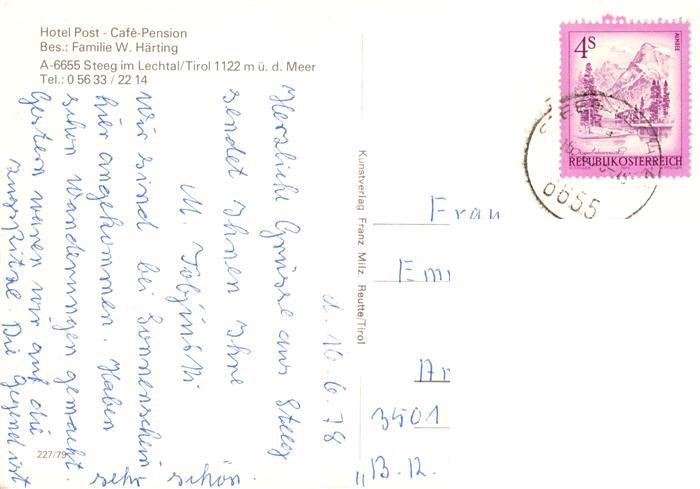 Hotel Post - Café-Pension
Bes.: Familie W. Härting
A-6655 Steeg im Lechtal/Tirol 1122 m ü. d. Meer
Tel.: 0 56 33 / 22 14
d. 16.6.78
Herzliche Grüsse aus Steeg
sendet Ihnen Ihre
M.
Wir sind bei Sonnenschein
hier angekommen. Haben
schon Wanderungen gemacht.
Gestern waren wir auf die
Zugspitze. Die Gegend ist
sehr schön.
227/79
Kunstverlag Franz Milz, Reutte/Tirol
4S
ALMSEE
REPUBLIK ÖSTERREICH
6655
Frau
Emi
3501
"B.R.